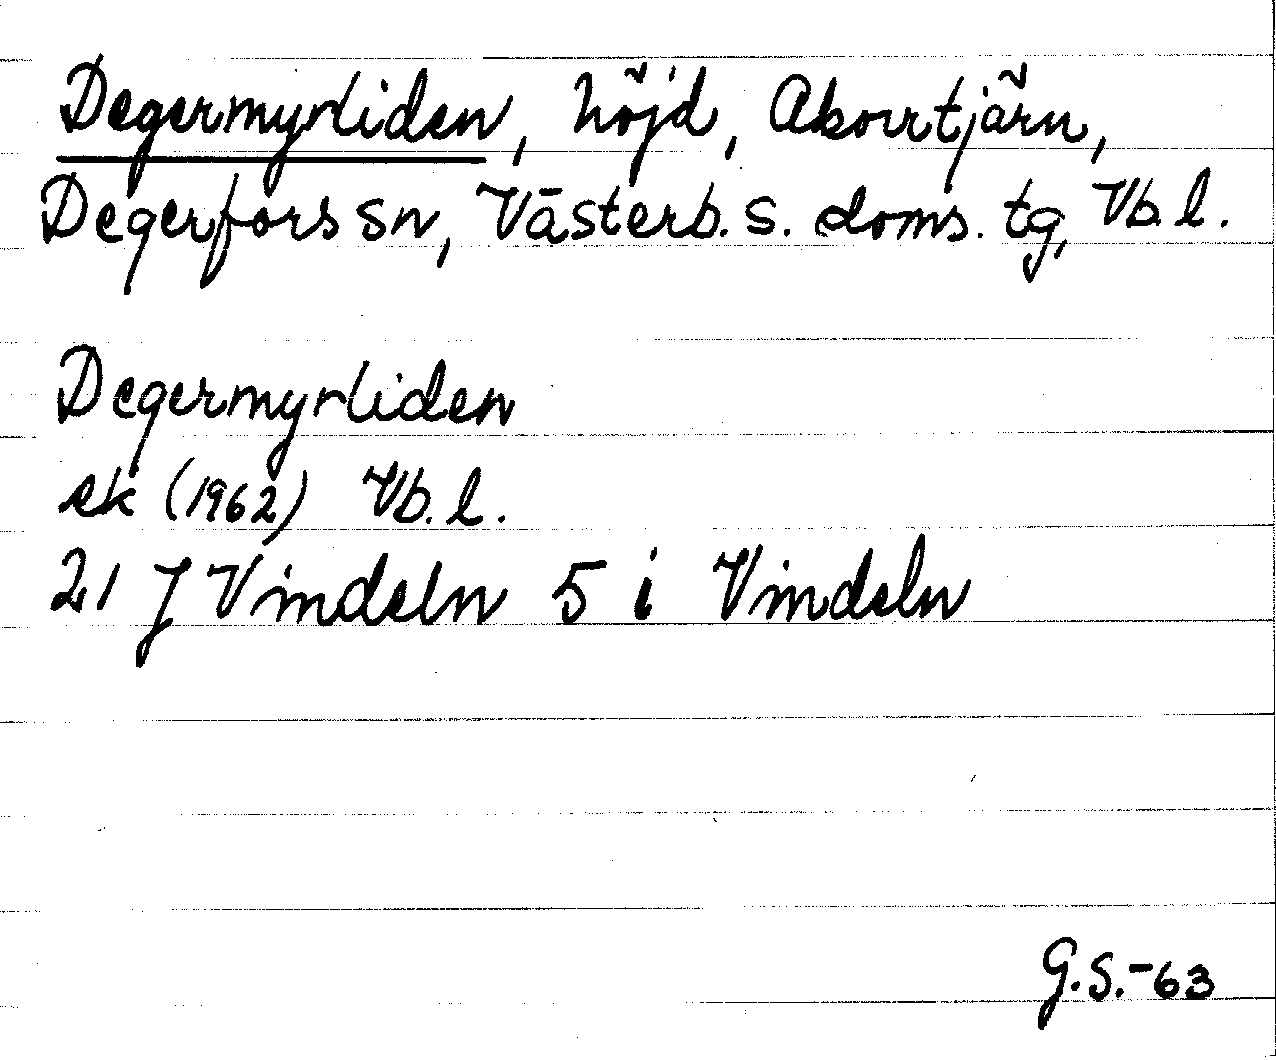 Degermyrliden, höjd, Abborrtjärn,
Degerfors sn, Västerb. s. doms. tg, Vb. l.
Degermyrliden
ek (1962) Vb. l.
21 J Vindeln 5 i Vindeln
G.S.-63